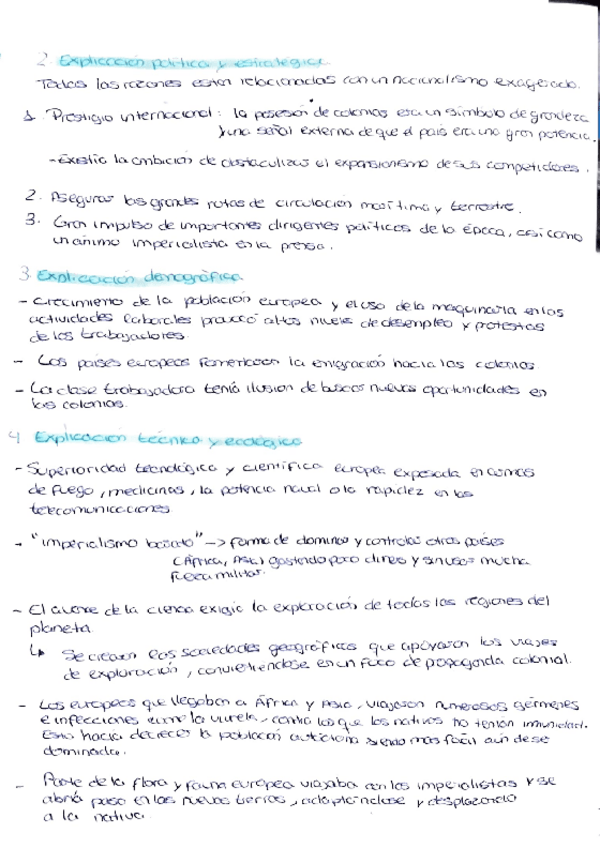 2. Explicación política y estratégica.
Todas las razones están relacionadas con un nacionalismo exagerado.
1. Prestigio internacional: la posesión de colonias era un símbolo de grandeza
y una señal externa de que el país era una gran potencia.
- Existía la ambición de obstaculizar el expansionismo de sus competidores.
2. Asegurar las grandes rutas de circulación marítima y terrestre.
3. Gran impulso de importantes dirigentes políticos de la época, así como
un ánimo imperialista en la prensa.
3. Explicación demográfica
- Crecimiento de la población europea y el uso de la maquinaria en las
actividades laborales provocó altos niveles de desempleo y protestas
de los trabajadores.
- Los países europeos fomentaban la emigración hacia las colonias
- La clase trabajadora tenía ilusión de buscar nuevas oportunidades en
las colonias.
4 Explicación técnica y ecológica
- Superioridad tecnológica y científica europea expresada en armas
de fuego, medicinas, la potencia naval o la rapidez en las
telecomunicaciones
- "imperialismo barato" -> forma de dominar y controlar otros países
(África, Asia) gastando poco dinero y sin usar mucha
fuerza militar.
- El avance de la ciencia exigía la exploración de todas las regiones del
planeta.
↳ Se crearon las sociedades geográficas que apoyaron los viajes
de exploración, convirtiéndose en un foco de propaganda colonial.
- Los europeos que llegaban a África y Asia, viajaron numerosos gérmenes
e infecciones como la viruela, contra los que los nativos no tenían inmunidad.
Esto hacía decrecer la población autóctona siendo más fácil aún de ser
dominada.
- Parte de la flora y fauna europea viajaba con los imperialistas y se
abría paso en las nuevas tierras, adaptándose y desplazando
a la nativa.